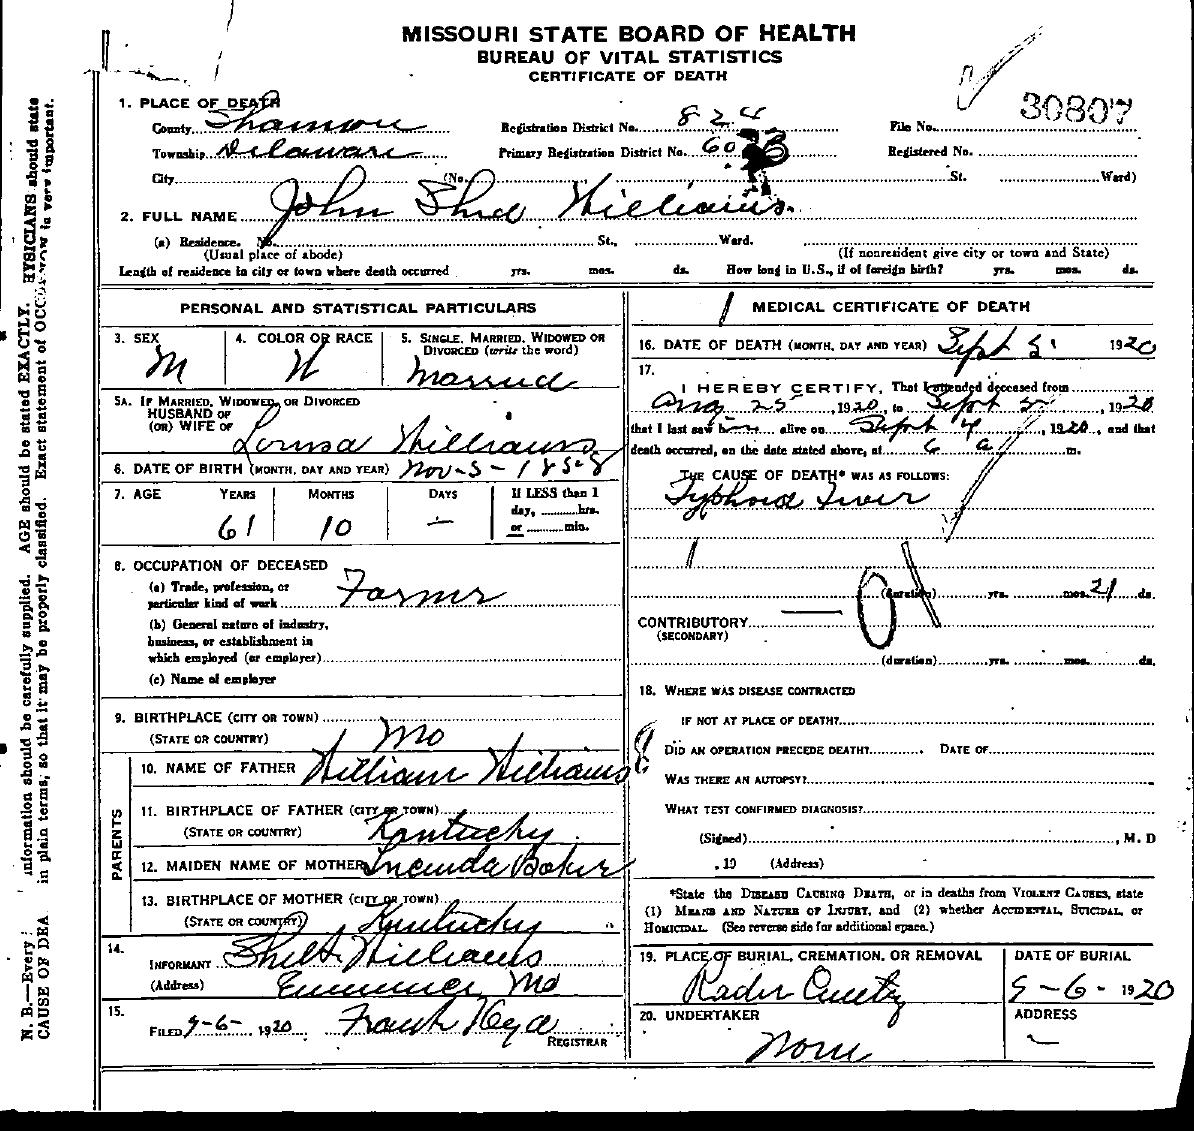 MISSOURI STATE BOARD OF HEALTH
BUREAU OF VITAL STATISTICS
CERTIFICATE OF DEATH
30807
1. PLACE OF DEATH
County Shannon Registration District No. 824 File No.
Township Delaware Primary Registration District No. 60 Registered No.
City (No. St. Ward)
2. FULL NAME John Williams.
(a) Residence. No. St., Ward.
(Usual place of abode) (If nonresident give city or town and State)
Length of residence in city or town where death occurred yrs. mos. ds. How long in U.S., if of foreign birth? yrs. mos. ds.
PERSONAL AND STATISTICAL PARTICULARS
3. SEX 4. COLOR OR RACE 5. SINGLE, MARRIED, WIDOWED OR
DIVORCED (write the word)
M W Married
5A. IF MARRIED, WIDOWED, OR DIVORCED
HUSBAND OF
(OR) WIFE OF Louisa Williams
6. DATE OF BIRTH (MONTH, DAY AND YEAR) Nov-5-1858
7. AGE YEARS MONTHS DAYS If LESS than 1
day, hrs.
or min.
61 10 —
8. OCCUPATION OF DECEASED
(a) Trade, profession, or
particular kind of work Farmer
(b) General nature of industry,
business, or establishment in
which employed (or employer)
(c) Name of employer
9. BIRTHPLACE (CITY OR TOWN)
(STATE OR COUNTRY) Mo
PARENTS
10. NAME OF FATHER William Williams
11. BIRTHPLACE OF FATHER (CITY OR TOWN)
(STATE OR COUNTRY) Kentucky
12. MAIDEN NAME OF MOTHER Baker
13. BIRTHPLACE OF MOTHER (CITY OR TOWN)
(STATE OR COUNTRY) Kentucky
14.
INFORMANT Williams
(Address) Eminence, Mo
15.
FILED 9-6- 1920 Frank
REGISTRAR
MEDICAL CERTIFICATE OF DEATH
16. DATE OF DEATH (MONTH, DAY AND YEAR) Sept 5 1920
17.
I HEREBY CERTIFY, That I attended deceased from
Aug 25, 1920, to Sept 5, 1920
that I last saw him alive on Sept 4, 1920, and that
death occurred, on the date stated above, at 6 a m.
THE CAUSE OF DEATH* WAS AS FOLLOWS:
Typhoid Fever
(duration) yrs. mos. 21 ds.
CONTRIBUTORY
(SECONDARY)
(duration) yrs. mos. ds.
18. WHERE WAS DISEASE CONTRACTED
IF NOT AT PLACE OF DEATH?
DID AN OPERATION PRECEDE DEATH? DATE OF
WAS THERE AN AUTOPSY?
WHAT TEST CONFIRMED DIAGNOSIS?
(Signed) , M. D
, 19 (Address)
*State the DISEASE CAUSING DEATH, or in deaths from VIOLENT CAUSES, state
(1) MEANS AND NATURE OF INJURY, and (2) whether ACCIDENTAL, SUICIDAL, or
HOMICIDAL. (See reverse side for additional space.)
19. PLACE OF BURIAL, CREMATION, OR REMOVAL DATE OF BURIAL
Rader Cemetery 9-6- 1920
20. UNDERTAKER ADDRESS
None —
N. B.—Every information should be carefully supplied. AGE should be stated EXACTLY. HYSICIANS should state
CAUSE OF DEA in plain terms, so that it may be properly classified. Exact statement of OCC is very important.